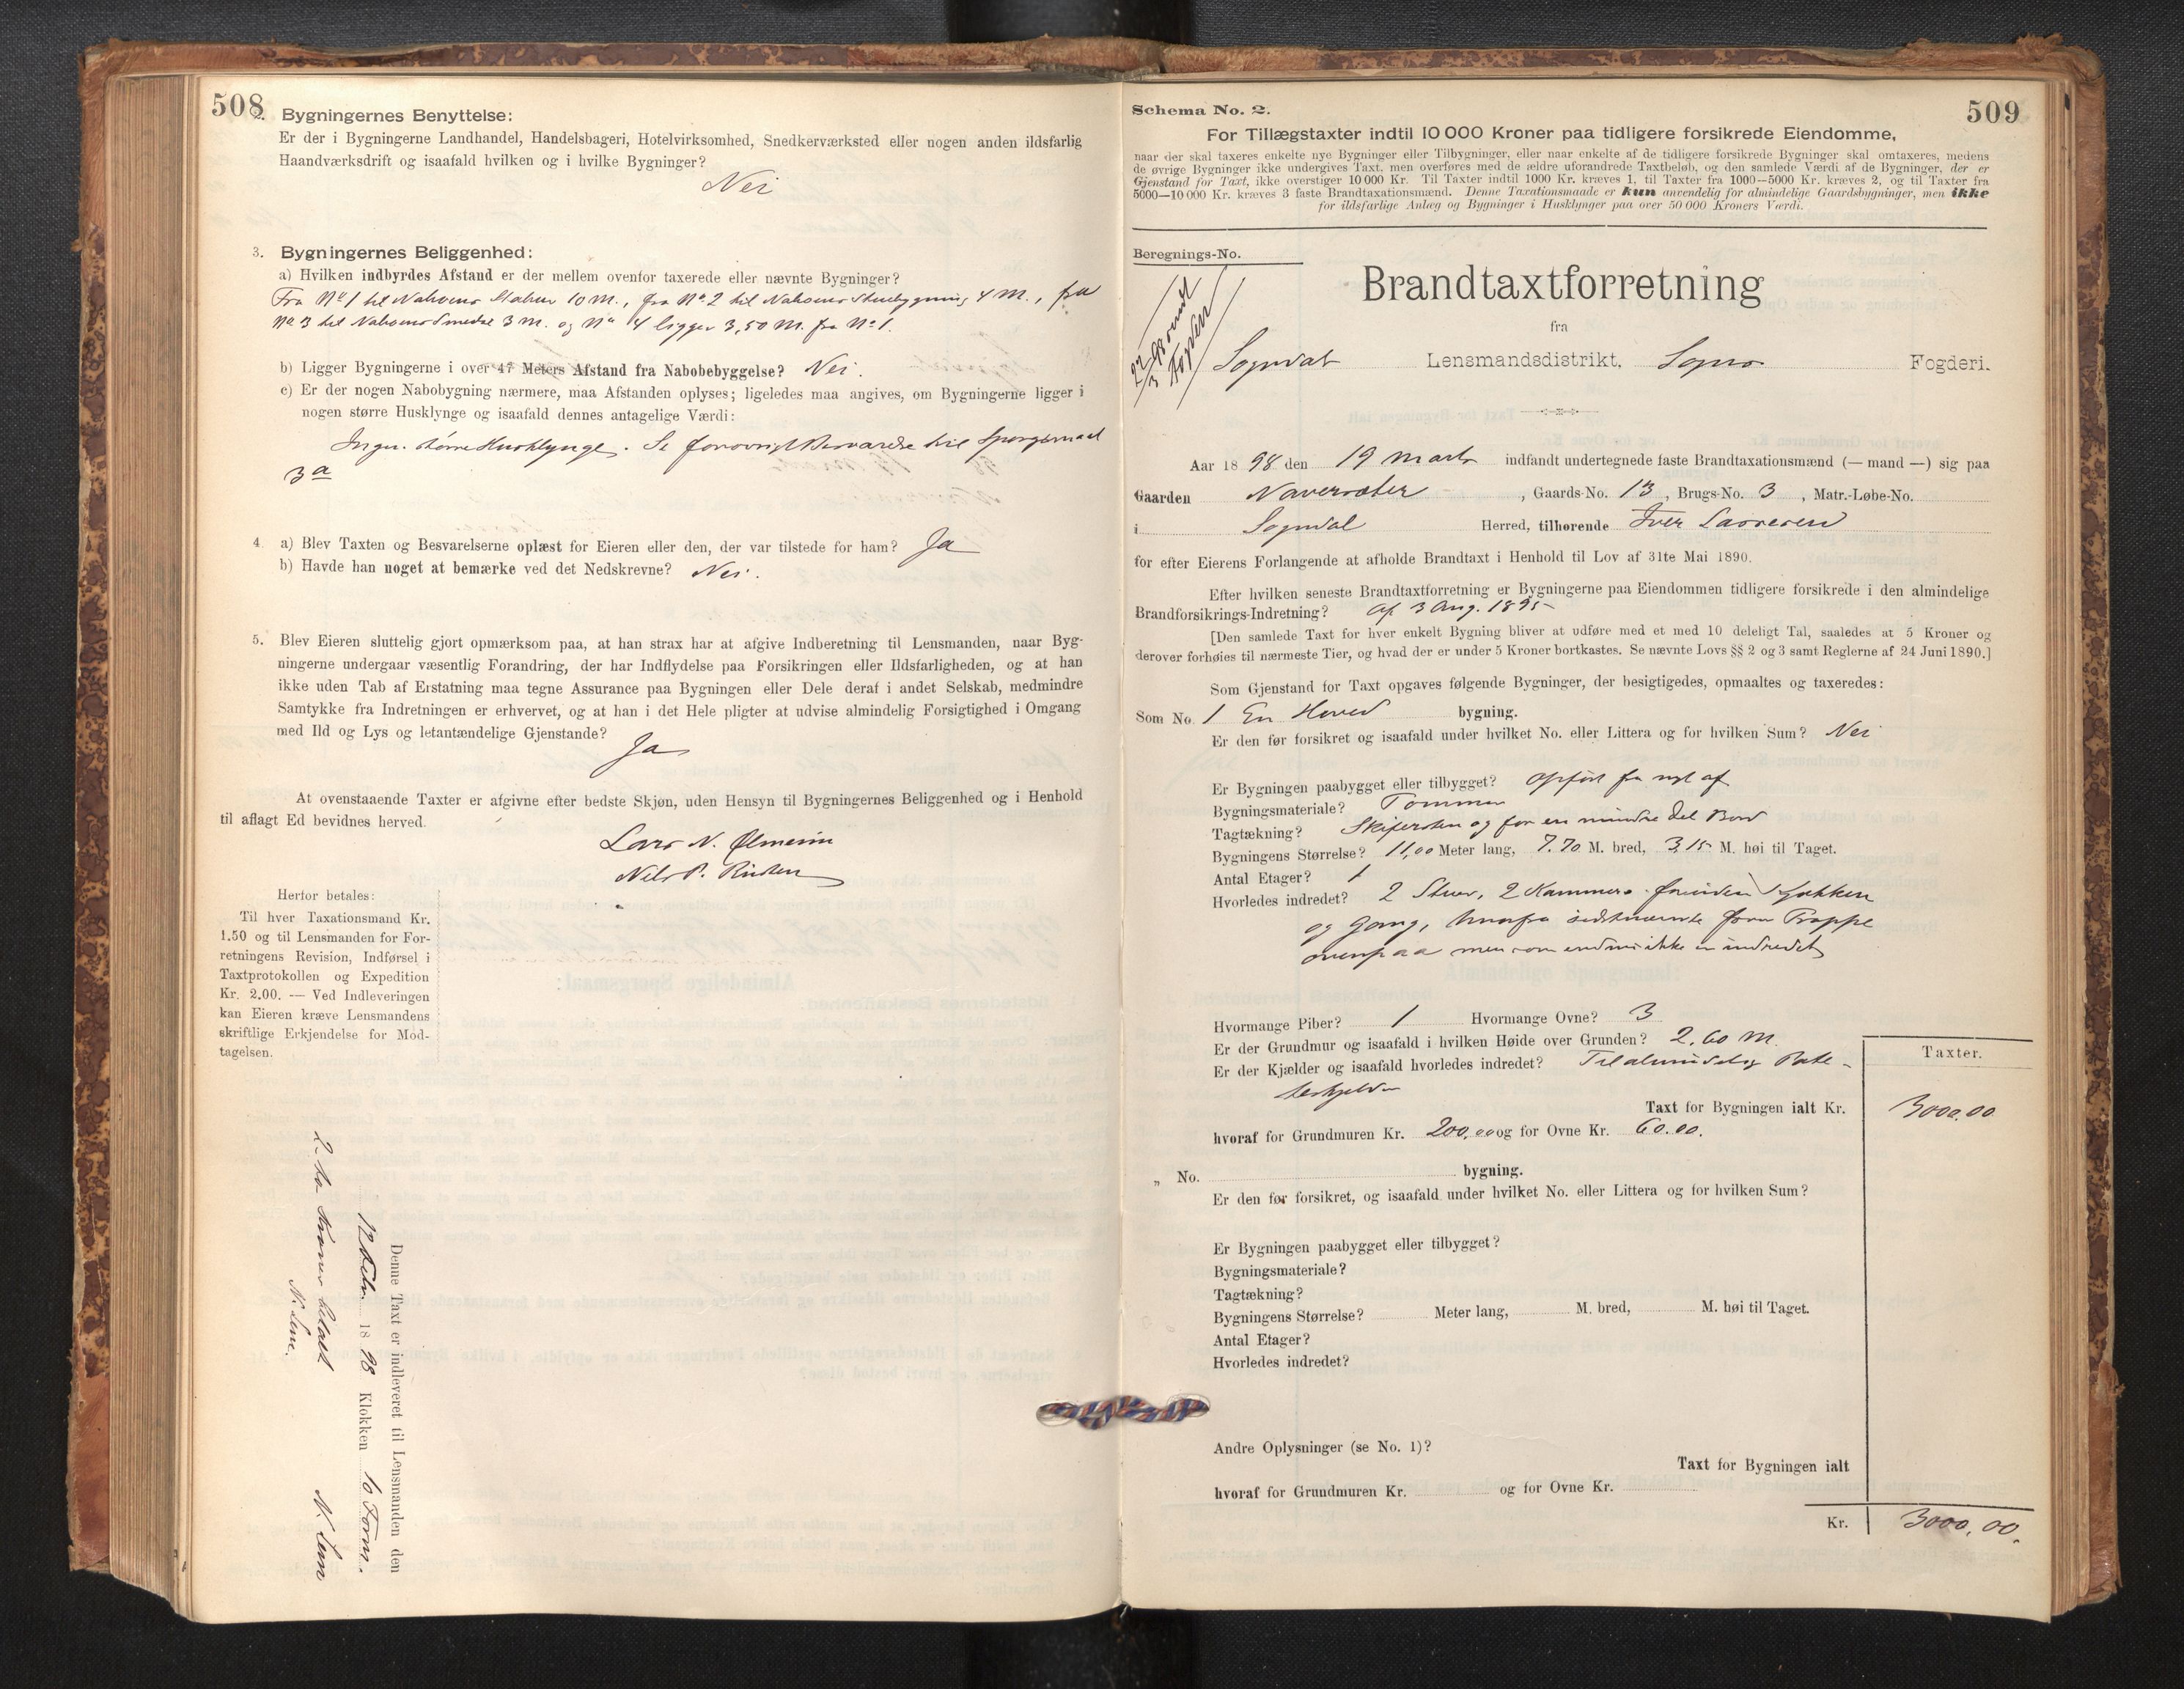 508
2. Bygningernes Benyttelse:
Er der i Bygningerne Landhandel, Handelsbageri, Hotelvirksomhed, Snedkerværksted eller nogen anden ildsfarlig
Haandværksdrift og isaafald hvilken og i hvilke Bygninger?
Nei
3. Bygningernes Beliggenhed:
a) Hvilken indbyrdes Afstand er der mellem ovenfor taxerede eller nævnte Bygninger?
Fra No 1 til Naboens Stabur 10 M., fra No 2 til Naboens Stuebygning 4 M., fra
No 3 til Naboens Smedie 3 M. og No 4 ligger 3,50 M. fra No 1.
b) Ligger Bygningerne i over 47 Meters Afstand fra Nabobebyggelse? Nei.
c) Er der nogen Nabobygning nærmere, maa Afstanden oplyses; ligeledes maa angives, om Bygningerne ligger i
nogen større Husklynge og isaafald dennes antagelige Værdi:
Ingen større Husklynge. Se forøvrigt Besvarelse til Spørgsmaal
3 a
4. a) Blev Taxten og Besvarelserne oplæst for Eieren eller den, der var tilstede for ham? Ja
b) Havde han noget at bemærke ved det Nedskrevne? Nei.
5. Blev Eieren sluttelig gjort opmærksom paa, at han strax har at afgive Indberetning til Lensmanden, naar Byg-
ningerne undergaar væsentlig Forandring, der har Indflydelse paa Forsikringen eller Ildsfarligheden, og at han
ikke uden Tab af Erstatning maa tegne Assurance paa Bygningen eller Dele deraf i andet Selskab, medmindre
Samtykke fra Indretningen er erhvervet, og at han i det Hele pligter at udvise almindelig Forsigtighed i Omgang
med Ild og Lys og letantændelige Gjenstande?
Ja
At ovenstaaende Taxter er afgivne efter bedste Skjøn, uden Hensyn til Bygningernes Beliggenhed og i Henhold
til aflagt Ed bevidnes herved.
Lars N.
Nils P.
Herfor betales:
Til hver Taxationsmand Kr.
1.50 og til Lensmanden for For-
retningens Revision, Indførsel i
Taxtprotokollen og Expedition
Kr. 2.00. — Ved Indleveringen
kan Eieren kræve Lensmandens
skriftlige Erkjendelse for Mod-
tagelsen.
Denne Taxt er indleveret til Lensmanden den
12 Febr. 1898 Klokken 10 Form.
N. Lem
2 to Kroner betalt
N. Lem.
Schema No. 2.
509
For Tillægstaxter indtil 10 000 Kroner paa tidligere forsikrede Eiendomme,
naar der skal taxeres enkelte nye Bygninger eller Tilbygninger, eller naar enkelte af de tidligere forsikrede Bygninger skal omtaxeres, medens
de øvrige Bygninger ikke undergives Taxt, men overføres med de ældre uforandrede Taxtbeløb, og den samlede Værdi af de Bygninger, der er
Gjenstand for Taxt, ikke overstiger 10 000 Kr. Til Taxter indtil 1000 Kr. kræves 1, til Taxter fra 1000—5000 Kr. kræves 2, og til Taxter fra
5000—10 000 Kr. kræves 3 faste Brandtaxationsmænd. Denne Taxationsmaade er kun anvendelig for almindelige Gaardsbygninger, men ikke
for ildsfarlige Anlæg og Bygninger i Husklynger paa over 50 000 Kroners Værdi.
Beregnings-No.
22/3 98 sendt
Fogden
Brandtaxtforretning
fra
Sogndal Lensmandsdistrikt, Sogns Fogderi.
Aar 1898 den 19 Marts indfandt undertegnede faste Brandtaxationsmænd (— mand —) sig paa
Gaarden Naversæter, Gaards-No. 13, Brugs-No. 3, Matr.-Løbe-No.
i Sogndal Herred, tilhørende Iver Lassesen
for efter Eierens Forlangende at afholde Brandtaxt i Henhold til Lov af 31te Mai 1890.
Efter hvilken seneste Brandtaxtforretning er Bygningerne paa Eiendommen tidligere forsikrede i den almindelige
Brandforsikrings-Indretning? af 3 Aug. 1895
[Den samlede Taxt for hver enkelt Bygning bliver at udføre med et med 10 deleligt Tal, saaledes at 5 Kroner og
derover forhøies til nærmeste Tier, og hvad der er under 5 Kroner bortkastes. Se nævnte Lovs §§ 2 og 3 samt Reglerne af 24 Juni 1890.]
Som Gjenstand for Taxt opgaves følgende Bygninger, der besigtigedes, opmaaltes og taxeredes:
Som No. 1 En Hoved bygning.
Er den før forsikret og isaafald under hvilket No. eller Littera og for hvilken Sum? Nei
Er Bygningen paabygget eller tilbygget? opført fra nyt af
Bygningsmateriale? Tømmer
Tagtækning? Skifersten og for en mindre Del Bord
Bygningens Størrelse? 11,00 Meter lang, 7.70 M. bred, 3,15 M. høi til Taget.
Antal Etager? 1
Hvorledes indredet? 2 Stuer, 2 Kammers foruden Kjøkken
og Gang, hvorfra sidstnævnte fører Trappe
ovenpaa men som endnu ikke er indredet
Hvormange Piber? 1 Hvormange Ovne? 3
Er der Grundmur og isaafald i hvilken Høide over Grunden? 2,60 M.
Er der Kjælder og isaafald hvorledes indredet? Til almindelig Pote-
teskjelder
Taxter.
Taxt for Bygningen ialt Kr. 3000,00
hvoraf for Grundmuren Kr. 200,00 og for Ovne Kr. 60.00.
„ No. bygning.
Er den før forsikret, og isaafald under hvilket No. eller Littera og for hvilken Sum?
Er Bygningen paabygget eller tilbygget?
Bygningsmateriale?
Tagtækning?
Bygningens Størrelse? Meter lang, M. bred, M. høi til Taget.
Antal Etager?
Hvorledes indredet?
Andre Oplysninger (se No. 1)?
Taxt for Bygningen ialt
hvoraf for Grundmuren Kr. og for Ovne Kr.
Kr. 3000,00.